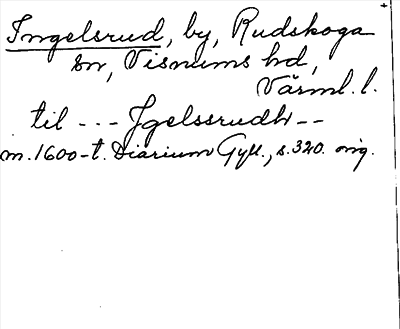 Ingelsrud, by, Rudskoga
sn, Visnums hd,
Värml. l.
til --- Jgelssrudh --
m. 1600-t. Diarium Gyll., s. 320. orig.